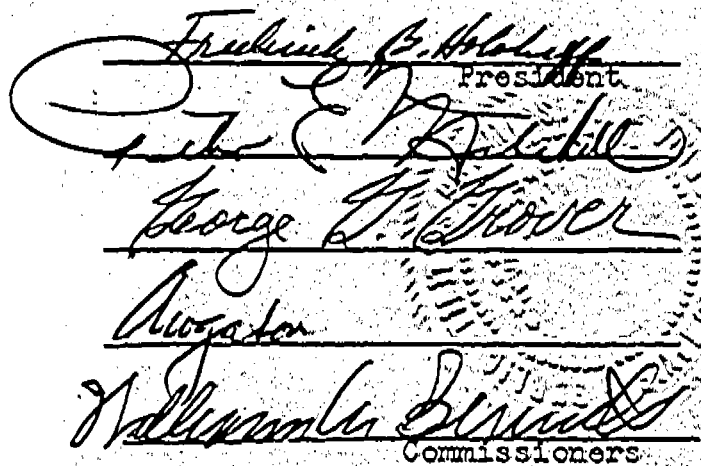 Frederick B. Holoboff
President
Peter E. Mitchell
George G. Grover
William M. Bennett
Commissioners